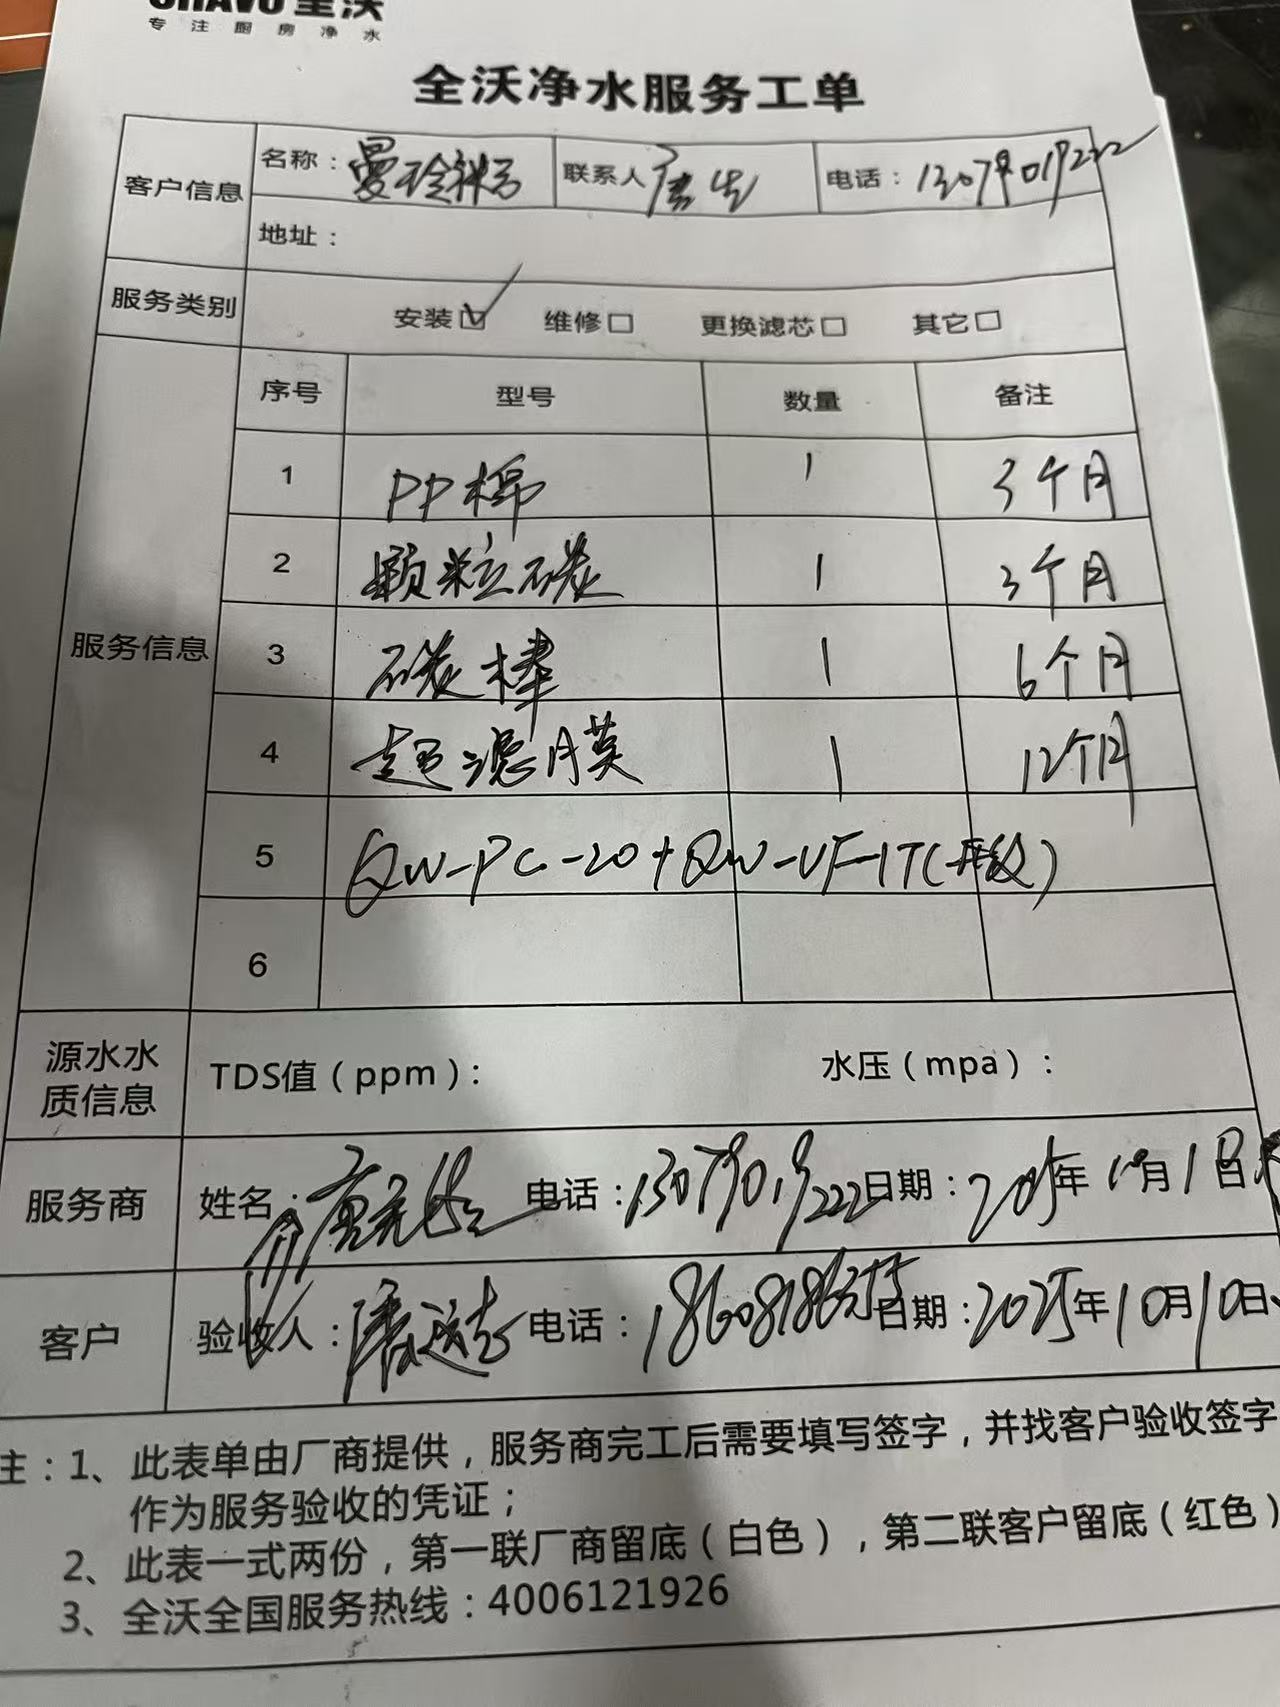 全沃
专注厨房净水
全沃净水服务工单
客户信息 名称： 曼玲粥 联系人 唐生 电话：13079019222
地址：
服务类别 安装☑ 维修□ 更换滤芯□ 其它□
服务信息
序号 型号 数量 备注
1 PP棉 1 3个月
2 颗粒碳 1 3个月
3 碳棒 1 6个月
4 超滤膜 1 12个月
5 QW-PC-20+QW-UF-1T(升级)
6
源水水质信息 TDS值（ppm）： 水压（mpa）：
服务商 姓名： 电话：13079019222 日期：2025年10月1日
客户 验收人： 电话： 日期：2025年10月10日
注：1、此表单由厂商提供，服务商完工后需要填写签字，并找客户验收签字
作为服务验收的凭证；
2、此表一式两份，第一联厂商留底（白色），第二联客户留底（红色）
3、全沃全国服务热线：4006121926